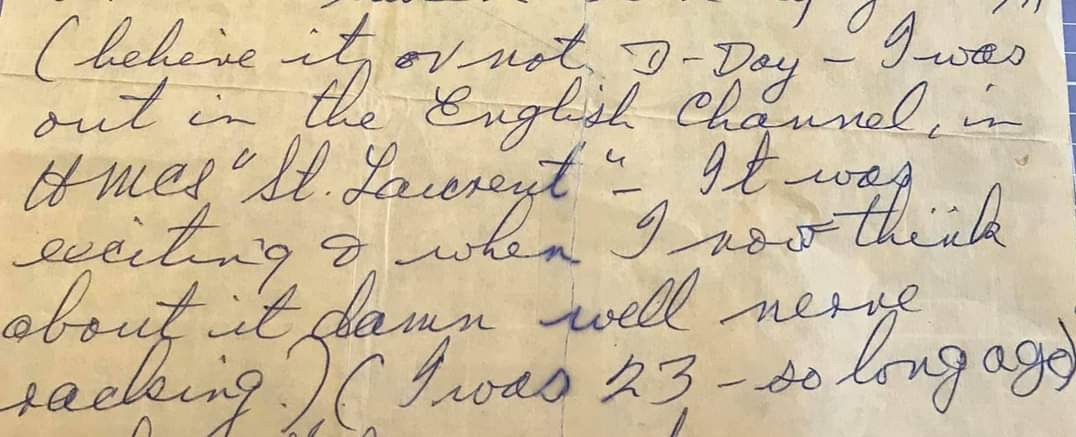 (believe it or not, D-Day - I was
out in the English Channel, in
HMCS "St. Laurent" - It was
exciting & when I now think
about it damn well nerve
racking.) (I was 23 - so long ago)